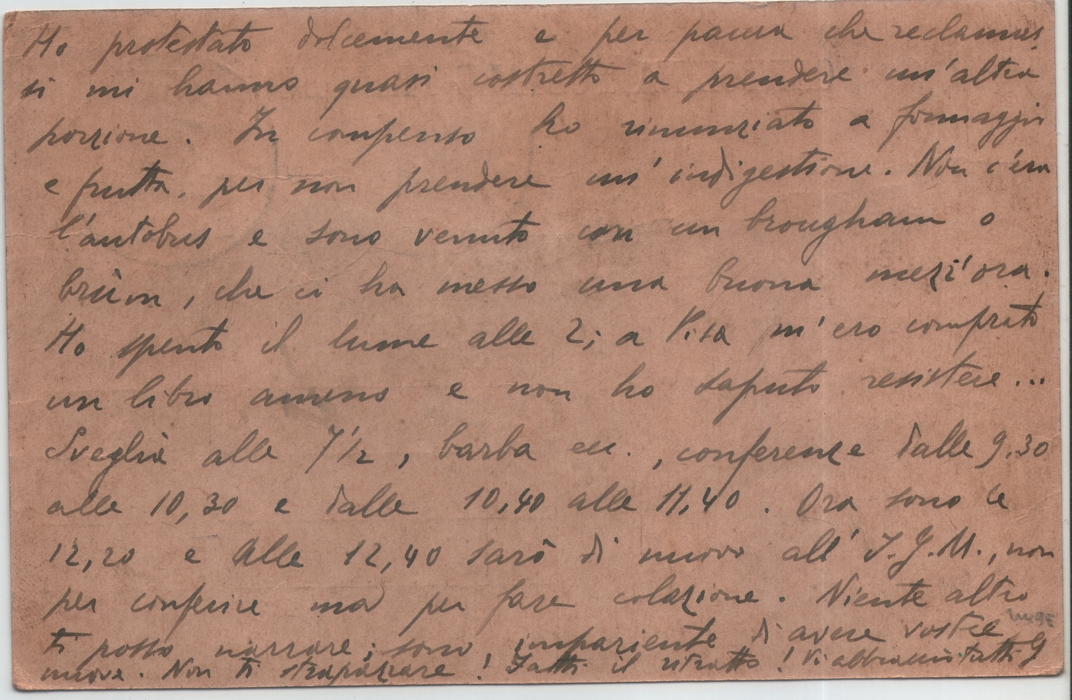 Ho protestato dolcemente e per paura che reclamas
si mi hanno quasi costretto a prendere un'altra
porzione. In compenso ho rinunziato a formaggio
e frutta, per non prendere un'indigestione. Non c'era
l'autobus e sono venuto con un brougham o
brùm, che ci ha messo una buona mezz'ora.
Ho spento il lume alle 2; a Pisa m'ero comprato
un libro ameno e non ho saputo resistere...
Sveglia alle 7 1/2, barba ecc., conferenze dalle 9,30
alle 10,30 e dalle 10,40 alle 11,40. Ora sono le
12,20 e alle 12,40 sarò di nuovo all'I.G.M., non
per conferire ma per fare colazione. Niente altro
ti posso narrare; sono impaziente di avere vostre
nuove. Non ti strapazzare! Fatti il ritratto! Vi abbraccio tutti G